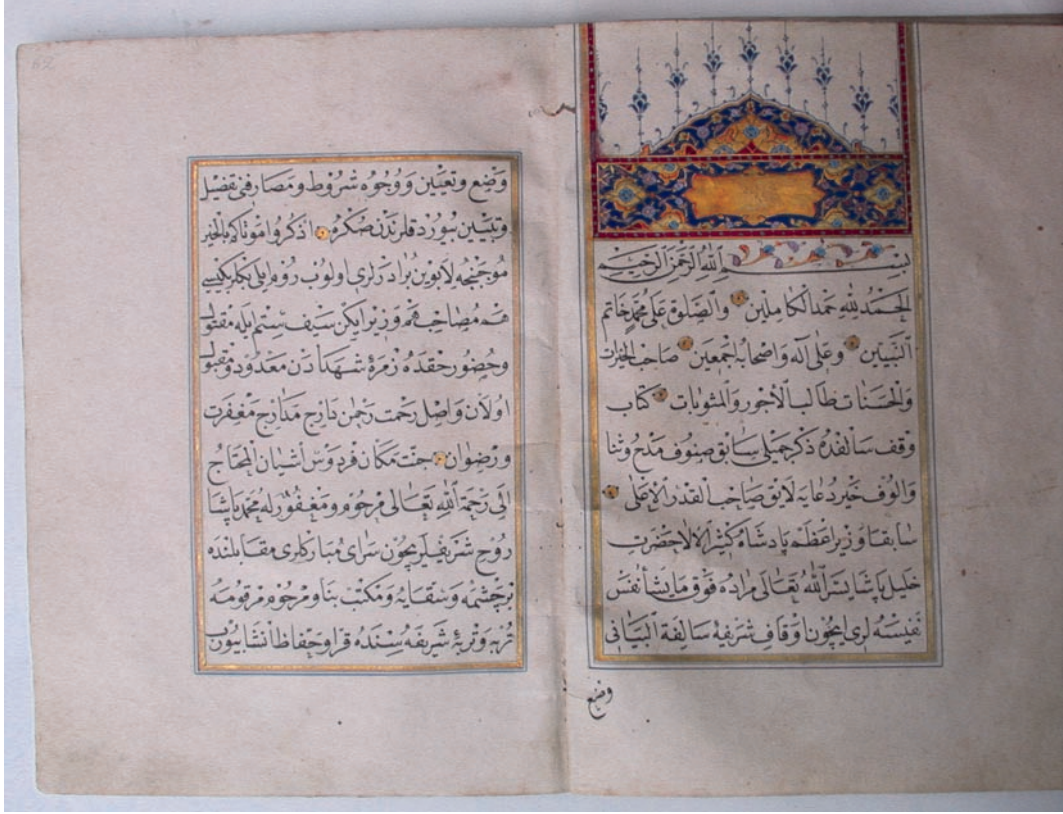 بسم الله الرحمن الرحيم
الحمد لله حمد الكاملين والصلوة على محمد خاتم
النبيين وعلى آله واصحابه اجمعين صاحب الخيرات
والحسنات طالب الاجور والمثوبات كتاب
وقف سالفده ذكر جميلى سابق صنوف مدح وثنا
والوف خير دعايه لايق صاحب القدر الاعلى
سابقا وزير اعظم پادشاه كثير الالا حضرت
خليل پاشا يسر الله تعالى مراده فوق ما يشأ نفس
نفيسه لرى ايچون اوقاف شريفه سالفة البيانى
وضع
وضع وتعيين ووجوه شروط ومصارفنى تفصيل
وتبيين بيوردقلرندن صكره اذكروا موتاكم بالخير
موجبنجه لابوين برادرلرى اولوب روم ايلى بكلربكيسى
هم مصاحب هم وزير ايكن سيف ستم ايله مقتول
وحضور حقده زمرۀ شهدادن معدود ومقبول
اولان واصل رحمت رحمن دارج مدارج مغفرت
ورضوان جنت مكان فردوس آشيان المحتاج
الى رحمة الله تعالى مرحوم ومغفور له محمد پاشا
روح شريفلريچون سراى مباركلرى مقابلنده
بر چشمه وسقايه ومكتب بنا ومرحوم مرقومه
تربه وتربۀ شريفه سنده قرا وحفاظ انشا بيورب
62